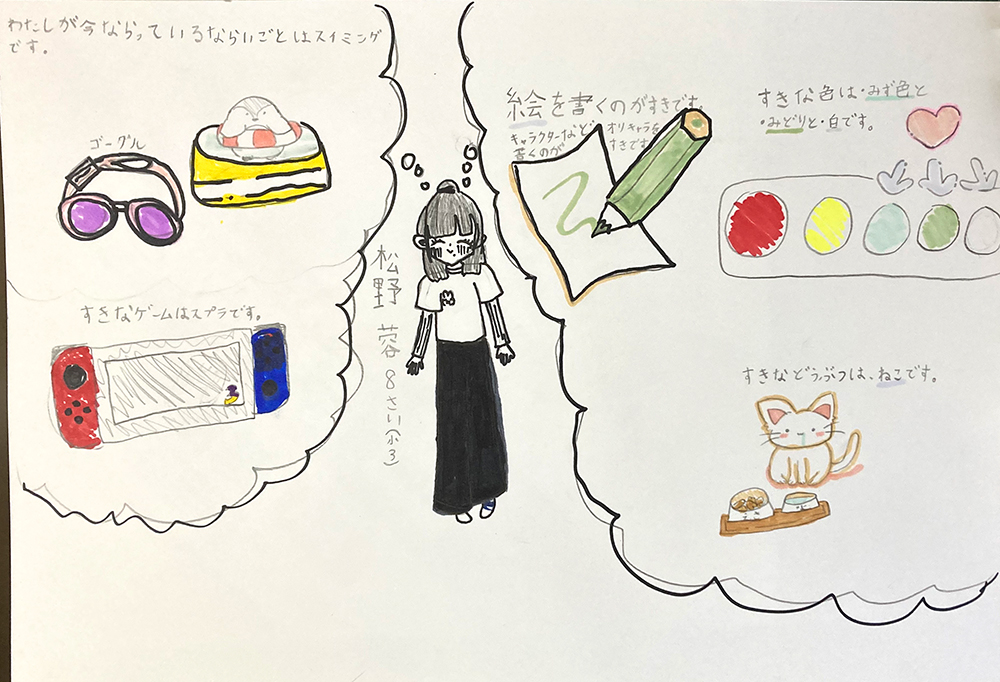 わたしが今ならっているならいごとはスイミング
です。
ゴーグル
すきなゲームはスプラです。
松野 蓉 8さい(小3)
絵を書くのがすきです。
キャラクターなど オリキャラを
書くのが すきです
すきな色は・みず色と
・みどりと・白です。
すきなどうぶつは、ねこです。